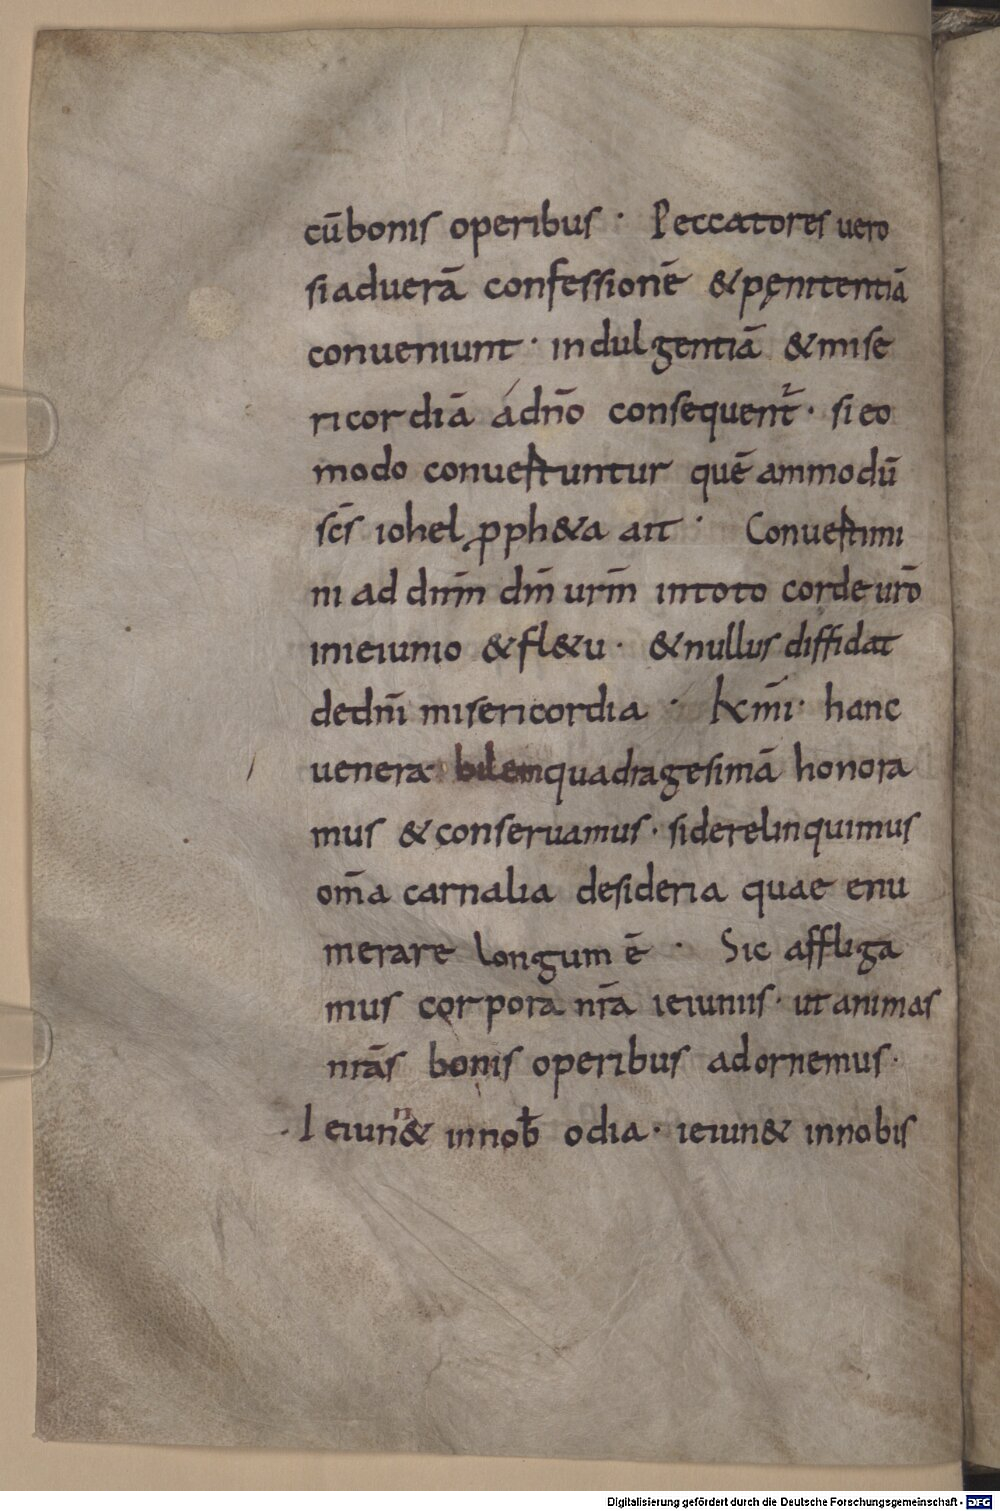 cū bonis operibus · Peccatores uero
si ad uerā confessionē & pęnitentiā
conueniunt · indulgentiā & mise
ricordiā á dnō consequent̄ · si eo
modo conuertuntur quē ammodū
scs̄ iohel ꝓph&a ait · Conuertimi
ni ad dnm̄ dm̄ urm̄ in toto corde urō
in ieiunio & fl&u · & nullus diffidat
de dn̄i misericordia · Km̄i · hanc
uenerabilem quadragesimā honora
mus & conseruamus · si derelinquimus
om̄a carnalia desideria quae enu
merare longum ē · Sic affliga
mus corpora nr̄a ieiuniis · ut animas
nrās bonis operibus adornemus ·
Ieiun& in nob̄ odia · ieiun& in nobis
Digitalisierung gefördert durch die Deutsche Forschungsgemeinschaft - DFG